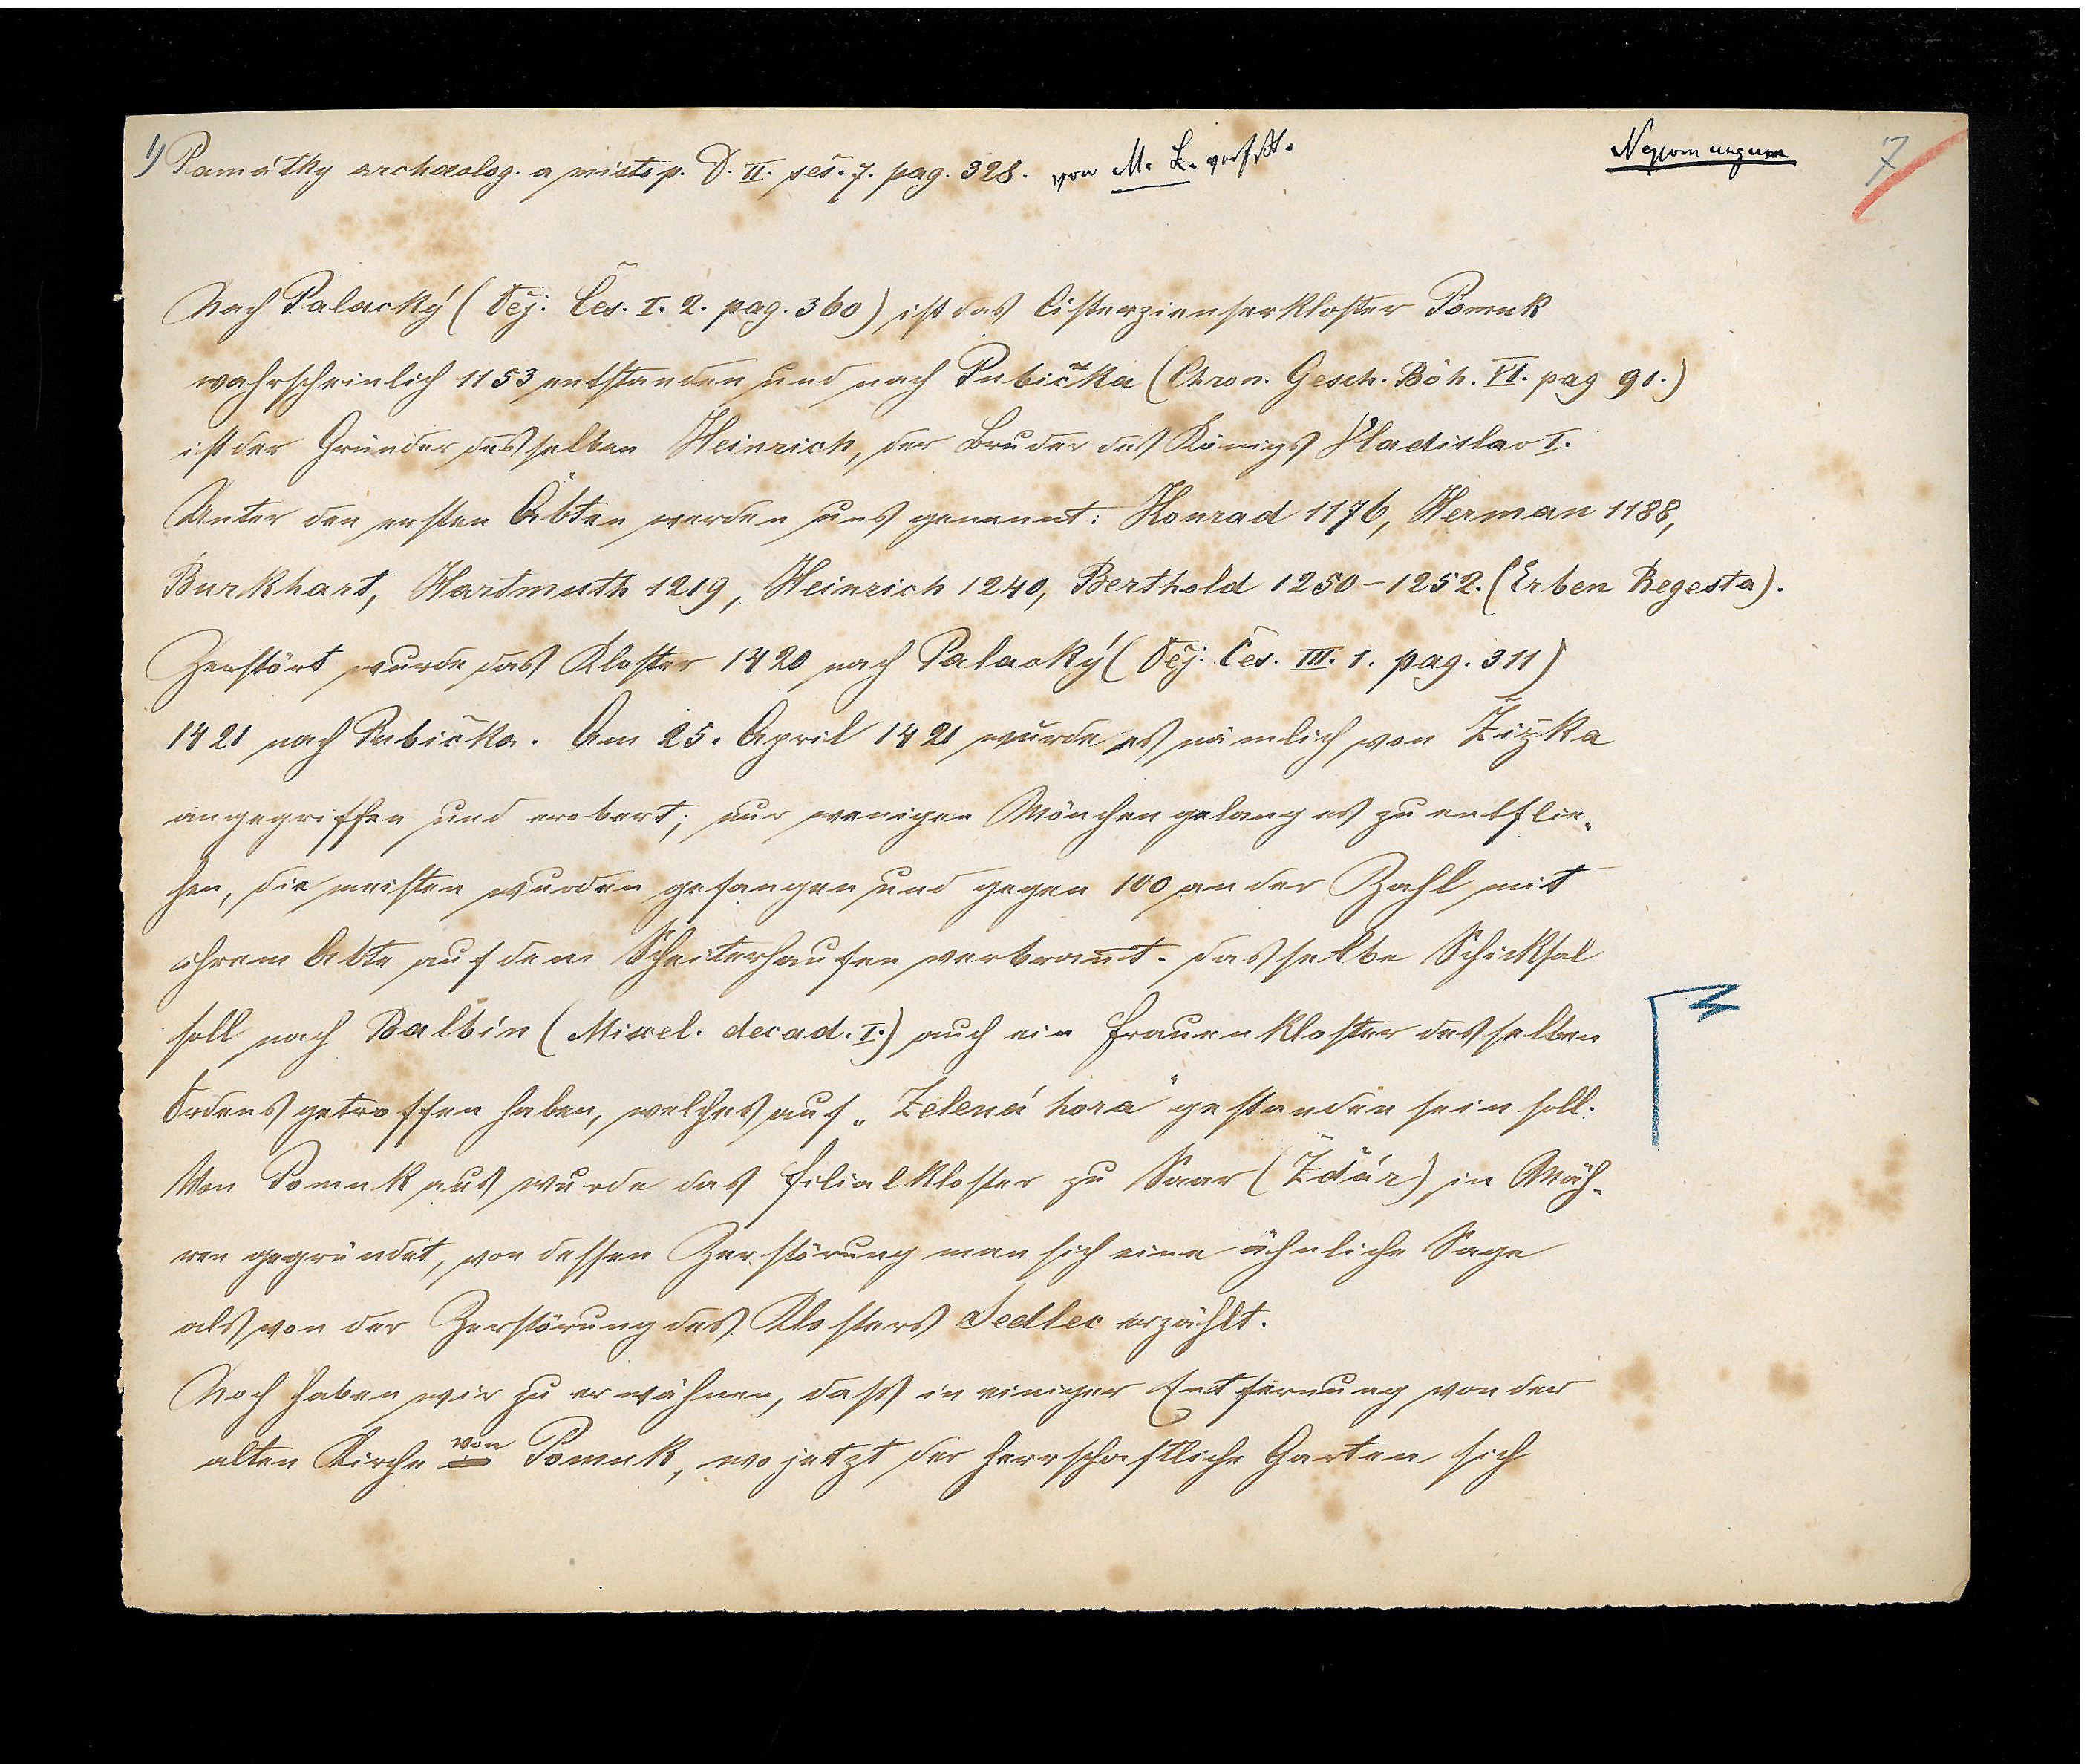 1) Památky archæolog. a místop. D. II. seš. 7. pag. 328. von M. L. verfßt.
Nepomucum
7
Nach Palacký (Děj. Čes. I. 2. pag. 360) ist das Cisterzienserkloster Pomuk
wahrscheinlich 1153 entstanden und nach Pubička (Chron. Gesch. Böh. VI. pag 91.)
ist der Gründer desselben Heinrich, der Bruder des Königs Vladislav I.
Unter den ersten Äbten werden uns genannt: Konrad 1176, Herman 1188,
Burkhart, Hartmuth 1219, Heinrich 1240, Berthold 1250-1252. (Erben Regesta).
Zerstört wurde das Kloster 1420 nach Palacký (Děj. Čes. III. 1. pag. 311)
1421 nach Pubička. Am 25. April 1421 wurde es nämlich von Žižka
angegriffen und erobert; nur wenigen Mönchen gelang es zu entflie-
hen, die meisten wurden gefangen und gegen 100 an der Zahl mit
ihrem Abte auf dem Scheiterhaufen verbran̅t. Dasselbe Schicksal
soll nach Balbin (Miscel. decad. I.) auch ein Frauenkloster desselben
Ordens getroffen haben, welches auf „Zelená hora" gestanden sein soll.
Von Pomuk aus wurde das Filialkloster zu Saar (Žďár) in Mäh-
ren gegründet, von dessen Zerstörung man sich eine ähnliche Sage
als von der Zerstörung des Klosters Sedlec erzählt.
Noch haben wir zu erwähnen, daß in einiger Entfernung von der
alten Kirche von Pomuk, wo jetzt der herrschaftliche Garten sich